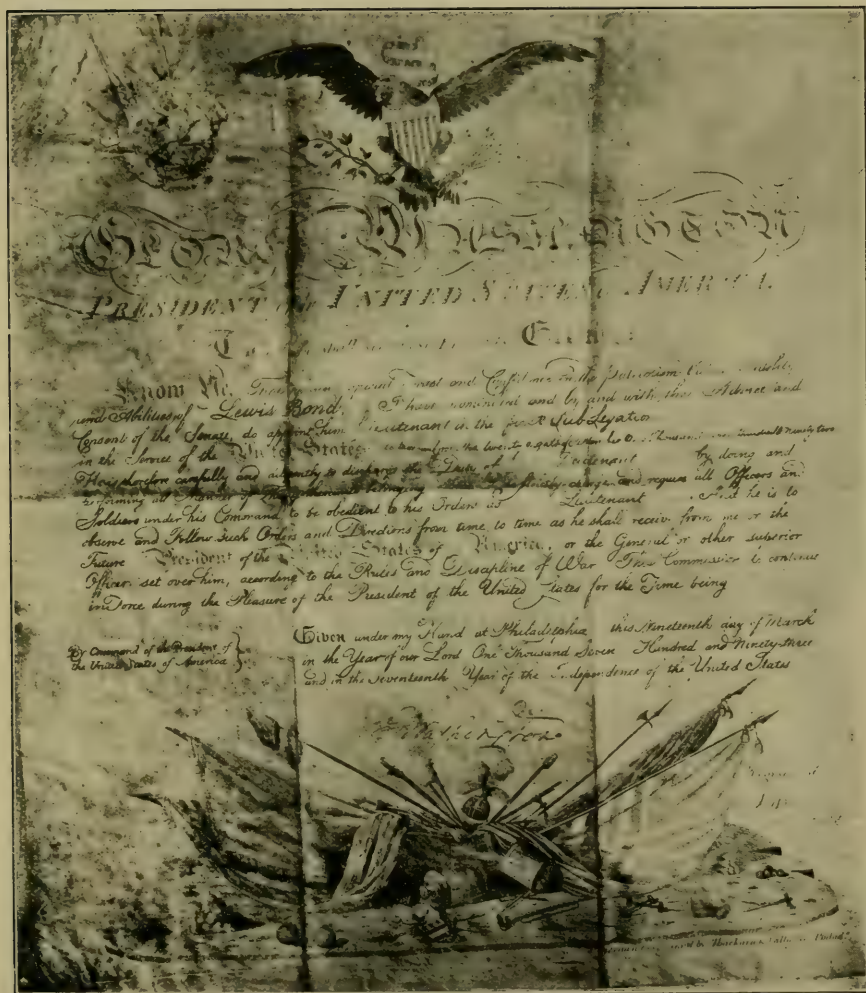 George Washington
PRESIDENT OF UNITED STATES AMERICA.
To shall
Know Ye, Trust and Confidence in the Patriotism
and Abilities of Lewis Bond. I have nominated and by and with the Advice and
Consent of the Senate, do appoint him Lieutenant in the Sub Legation
in the Service of the United States: to Thousand Hundred Ninety two
He is therefore carefully and diligently to discharge the Duty of Lieutenant by doing and
performing all Manner of Things thereunto belonging strictly charge and require all Officers and
Soldiers under his Command, to be obedient to his Orders as Lieutenant. he is to
observe and follow such Orders and Directions from time, to time as he shall receive from me or the
Future President of the United States of America, or the General or other superior
Officers set over him, according to the Rules and Discipline of War. This Commission to continue
in Force during the Pleasure of the President of the United States for the Time being
By Command of the President of
the United States of America
Given under my Hand at Philadelphia this Nineteenth day of March
in the Year of our Lord One Thousand Seven Hundred and Ninety three
and in the Seventeenth Year of the Independence of the United States
Go Washington